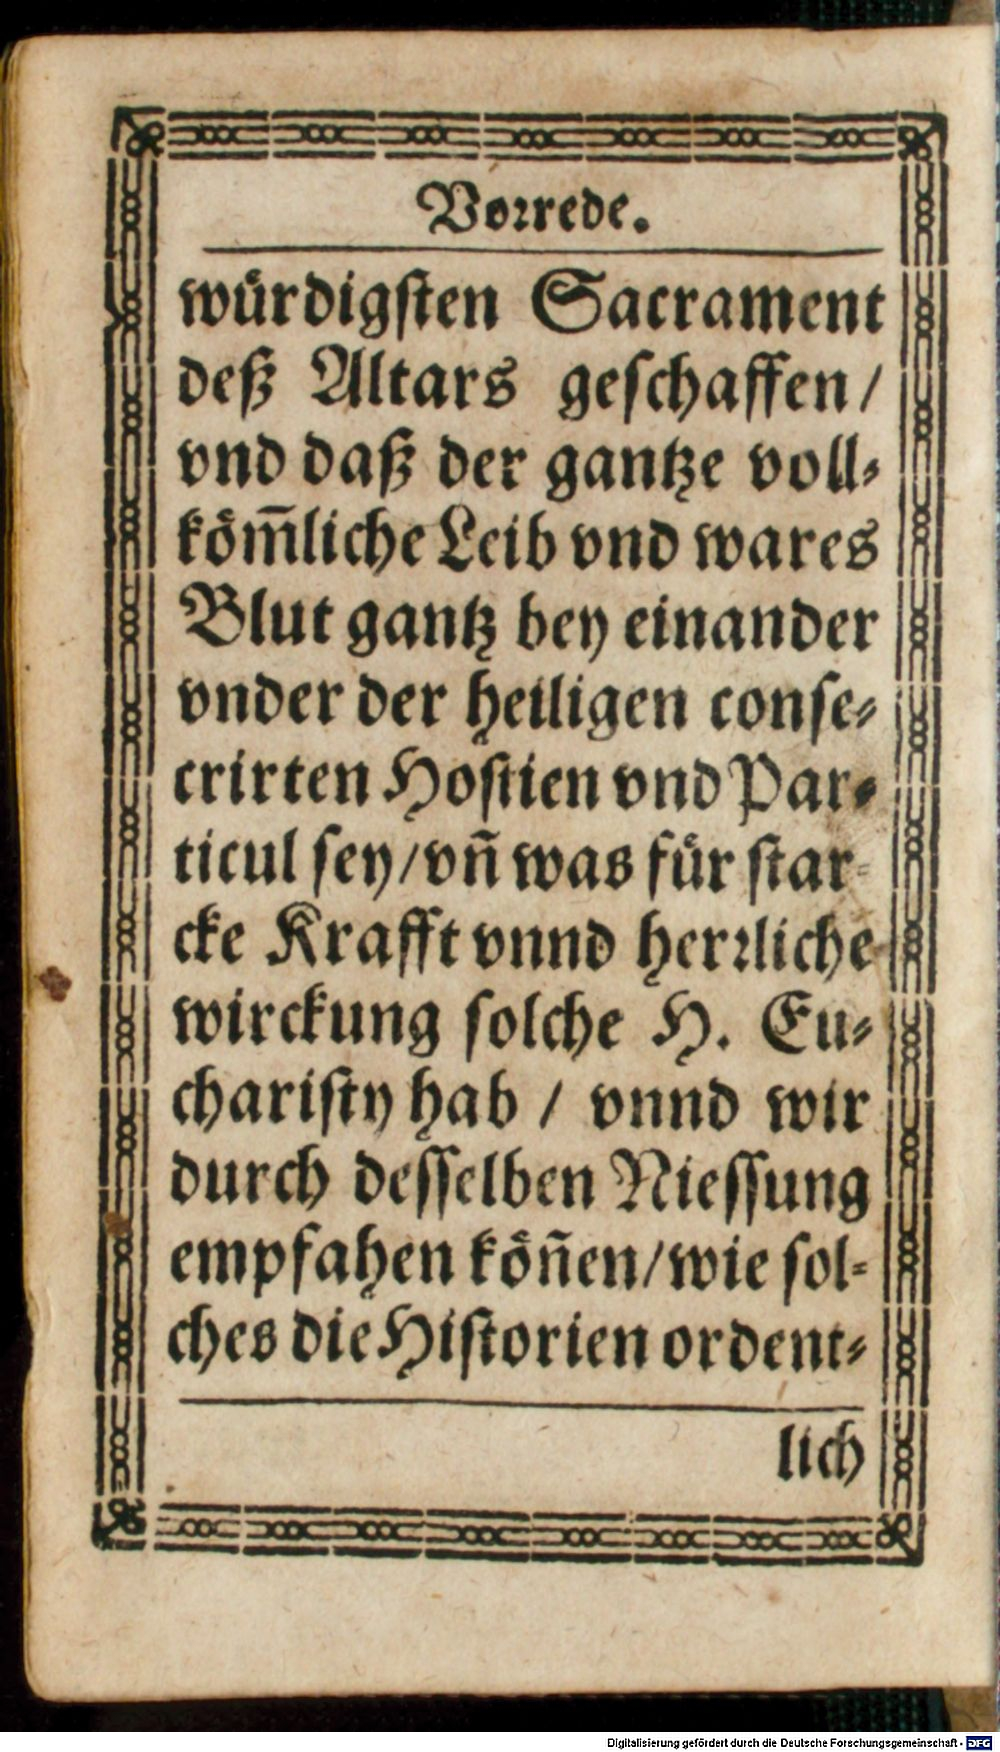 Vorrede.
würdigsten Sacrament
deß Altars geschaffen/
vnd daß der gantze voll-
köm̄liche Leib vnd wares
Blut gantz bey einander
vnder der heiligen conse-
crirten Hostien vnd Par-
ticul sey/vn̄ was für star-
cke Krafft vnnd herrliche
wirckung solche H. Eu-
charisty hab / vnnd wir
durch desselben Niessung
empfahen kön̄en/wie sol-
ches die Historien ordent-
lich
Digitalisierung gefördert durch die Deutsche Forschungsgemeinschaft - DFG